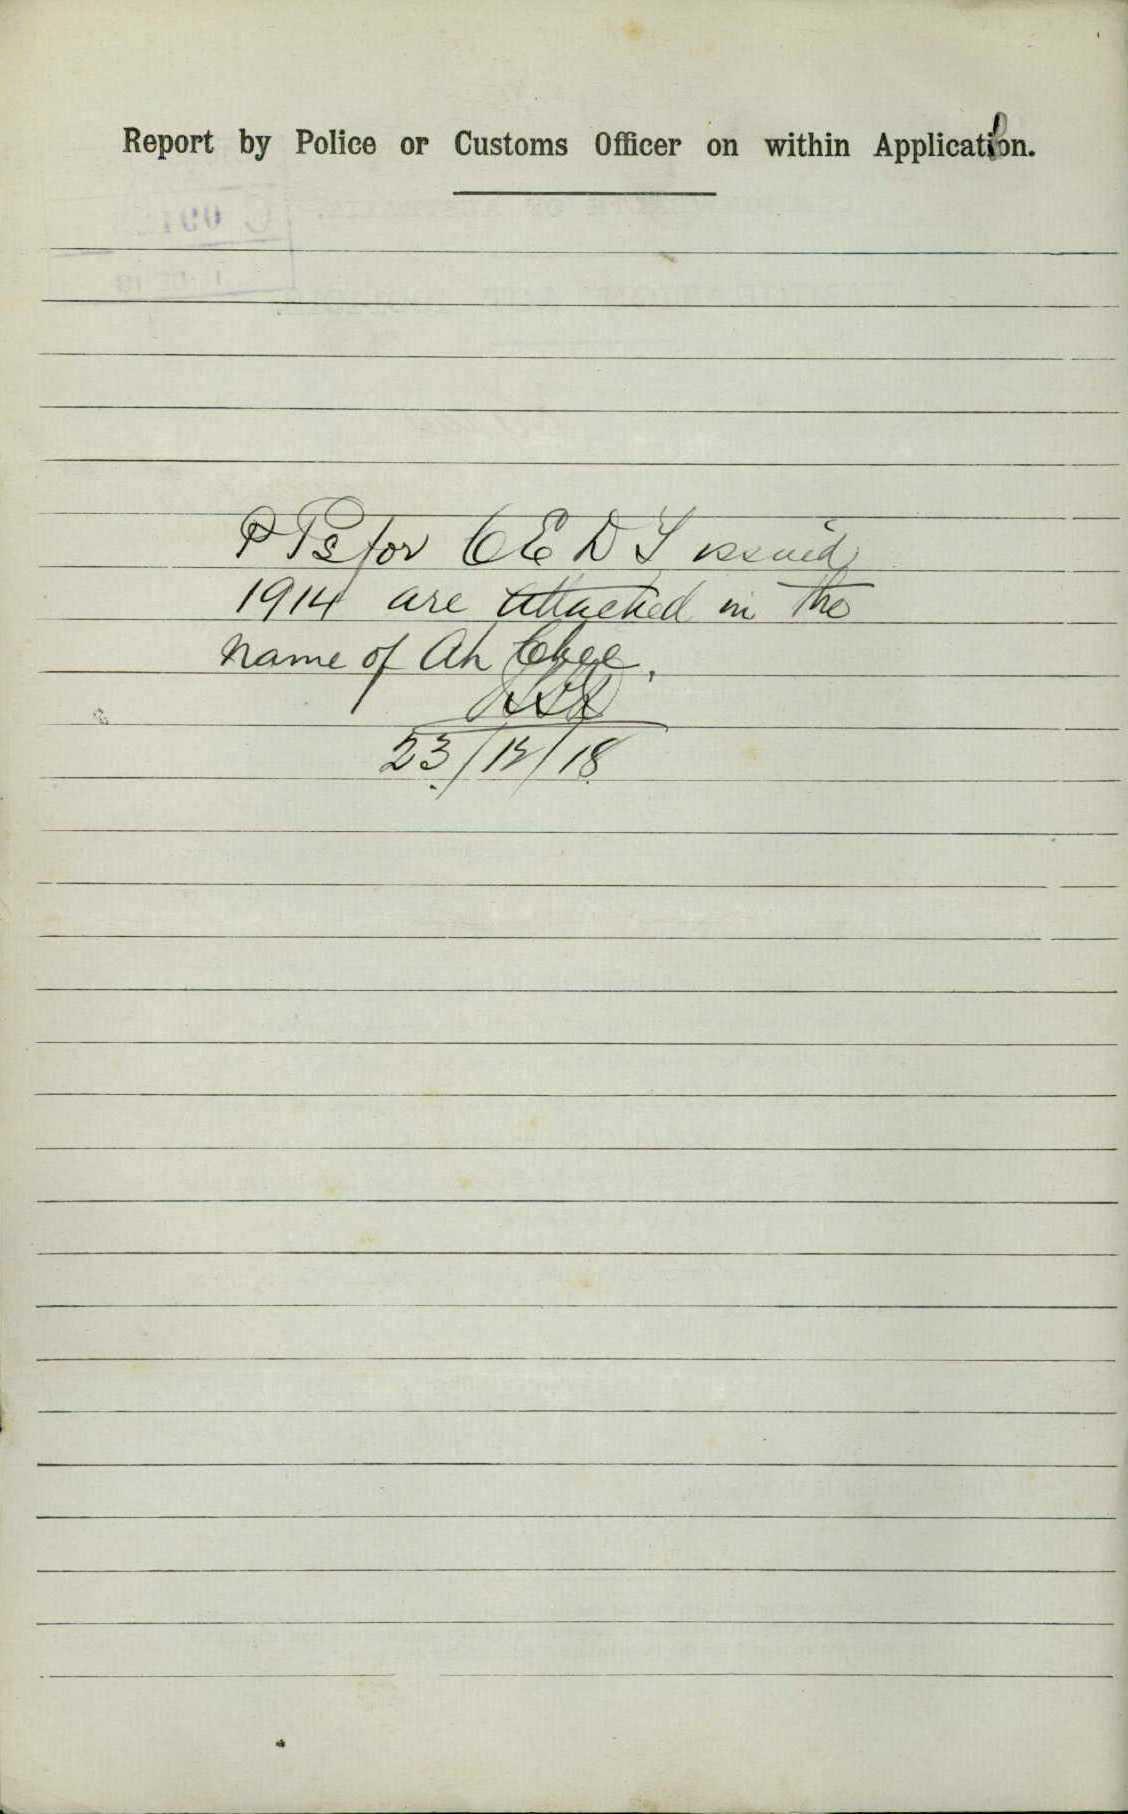 Report by Police or Customs Officer on within Application.
P Ps for C E D T issued
1914 are attached in the
name of Ah Chee.
23/12/18